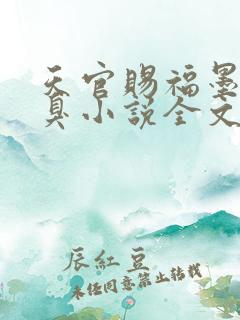 天官赐福墨
臭小说全文
辰紅豆
未经同意禁止转载